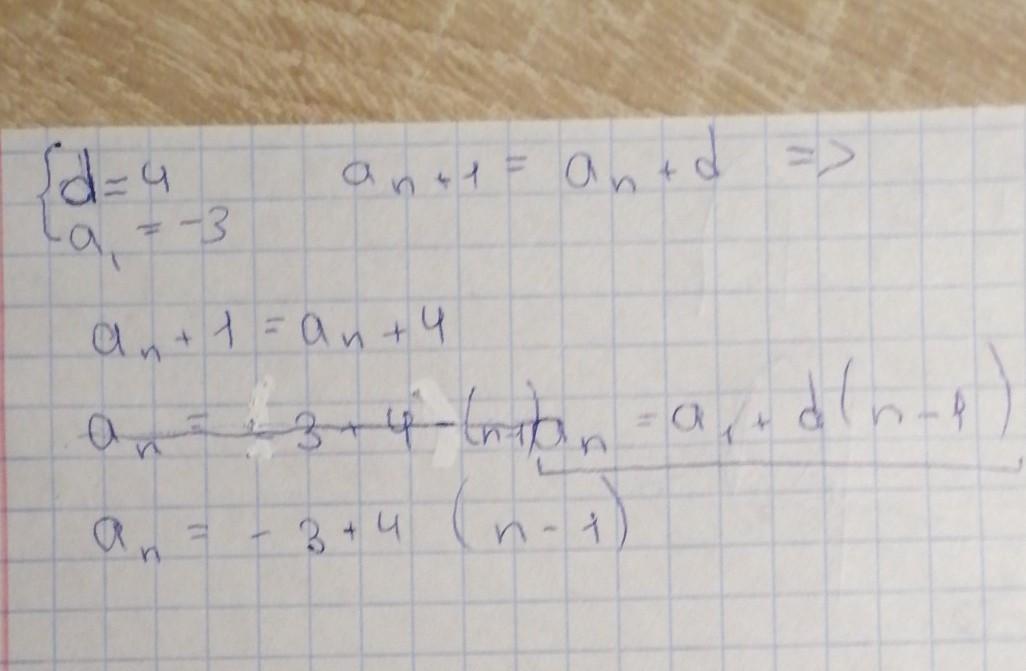 {d = 4     aₙ₊₁ = aₙ + d =>
a₁ = -3
aₙ + 1 = aₙ + 4
aₙ = - 3 + 4 (n-1) aₙ = a₁ + d(n-1)
aₙ = - 3 + 4 (n - 1)